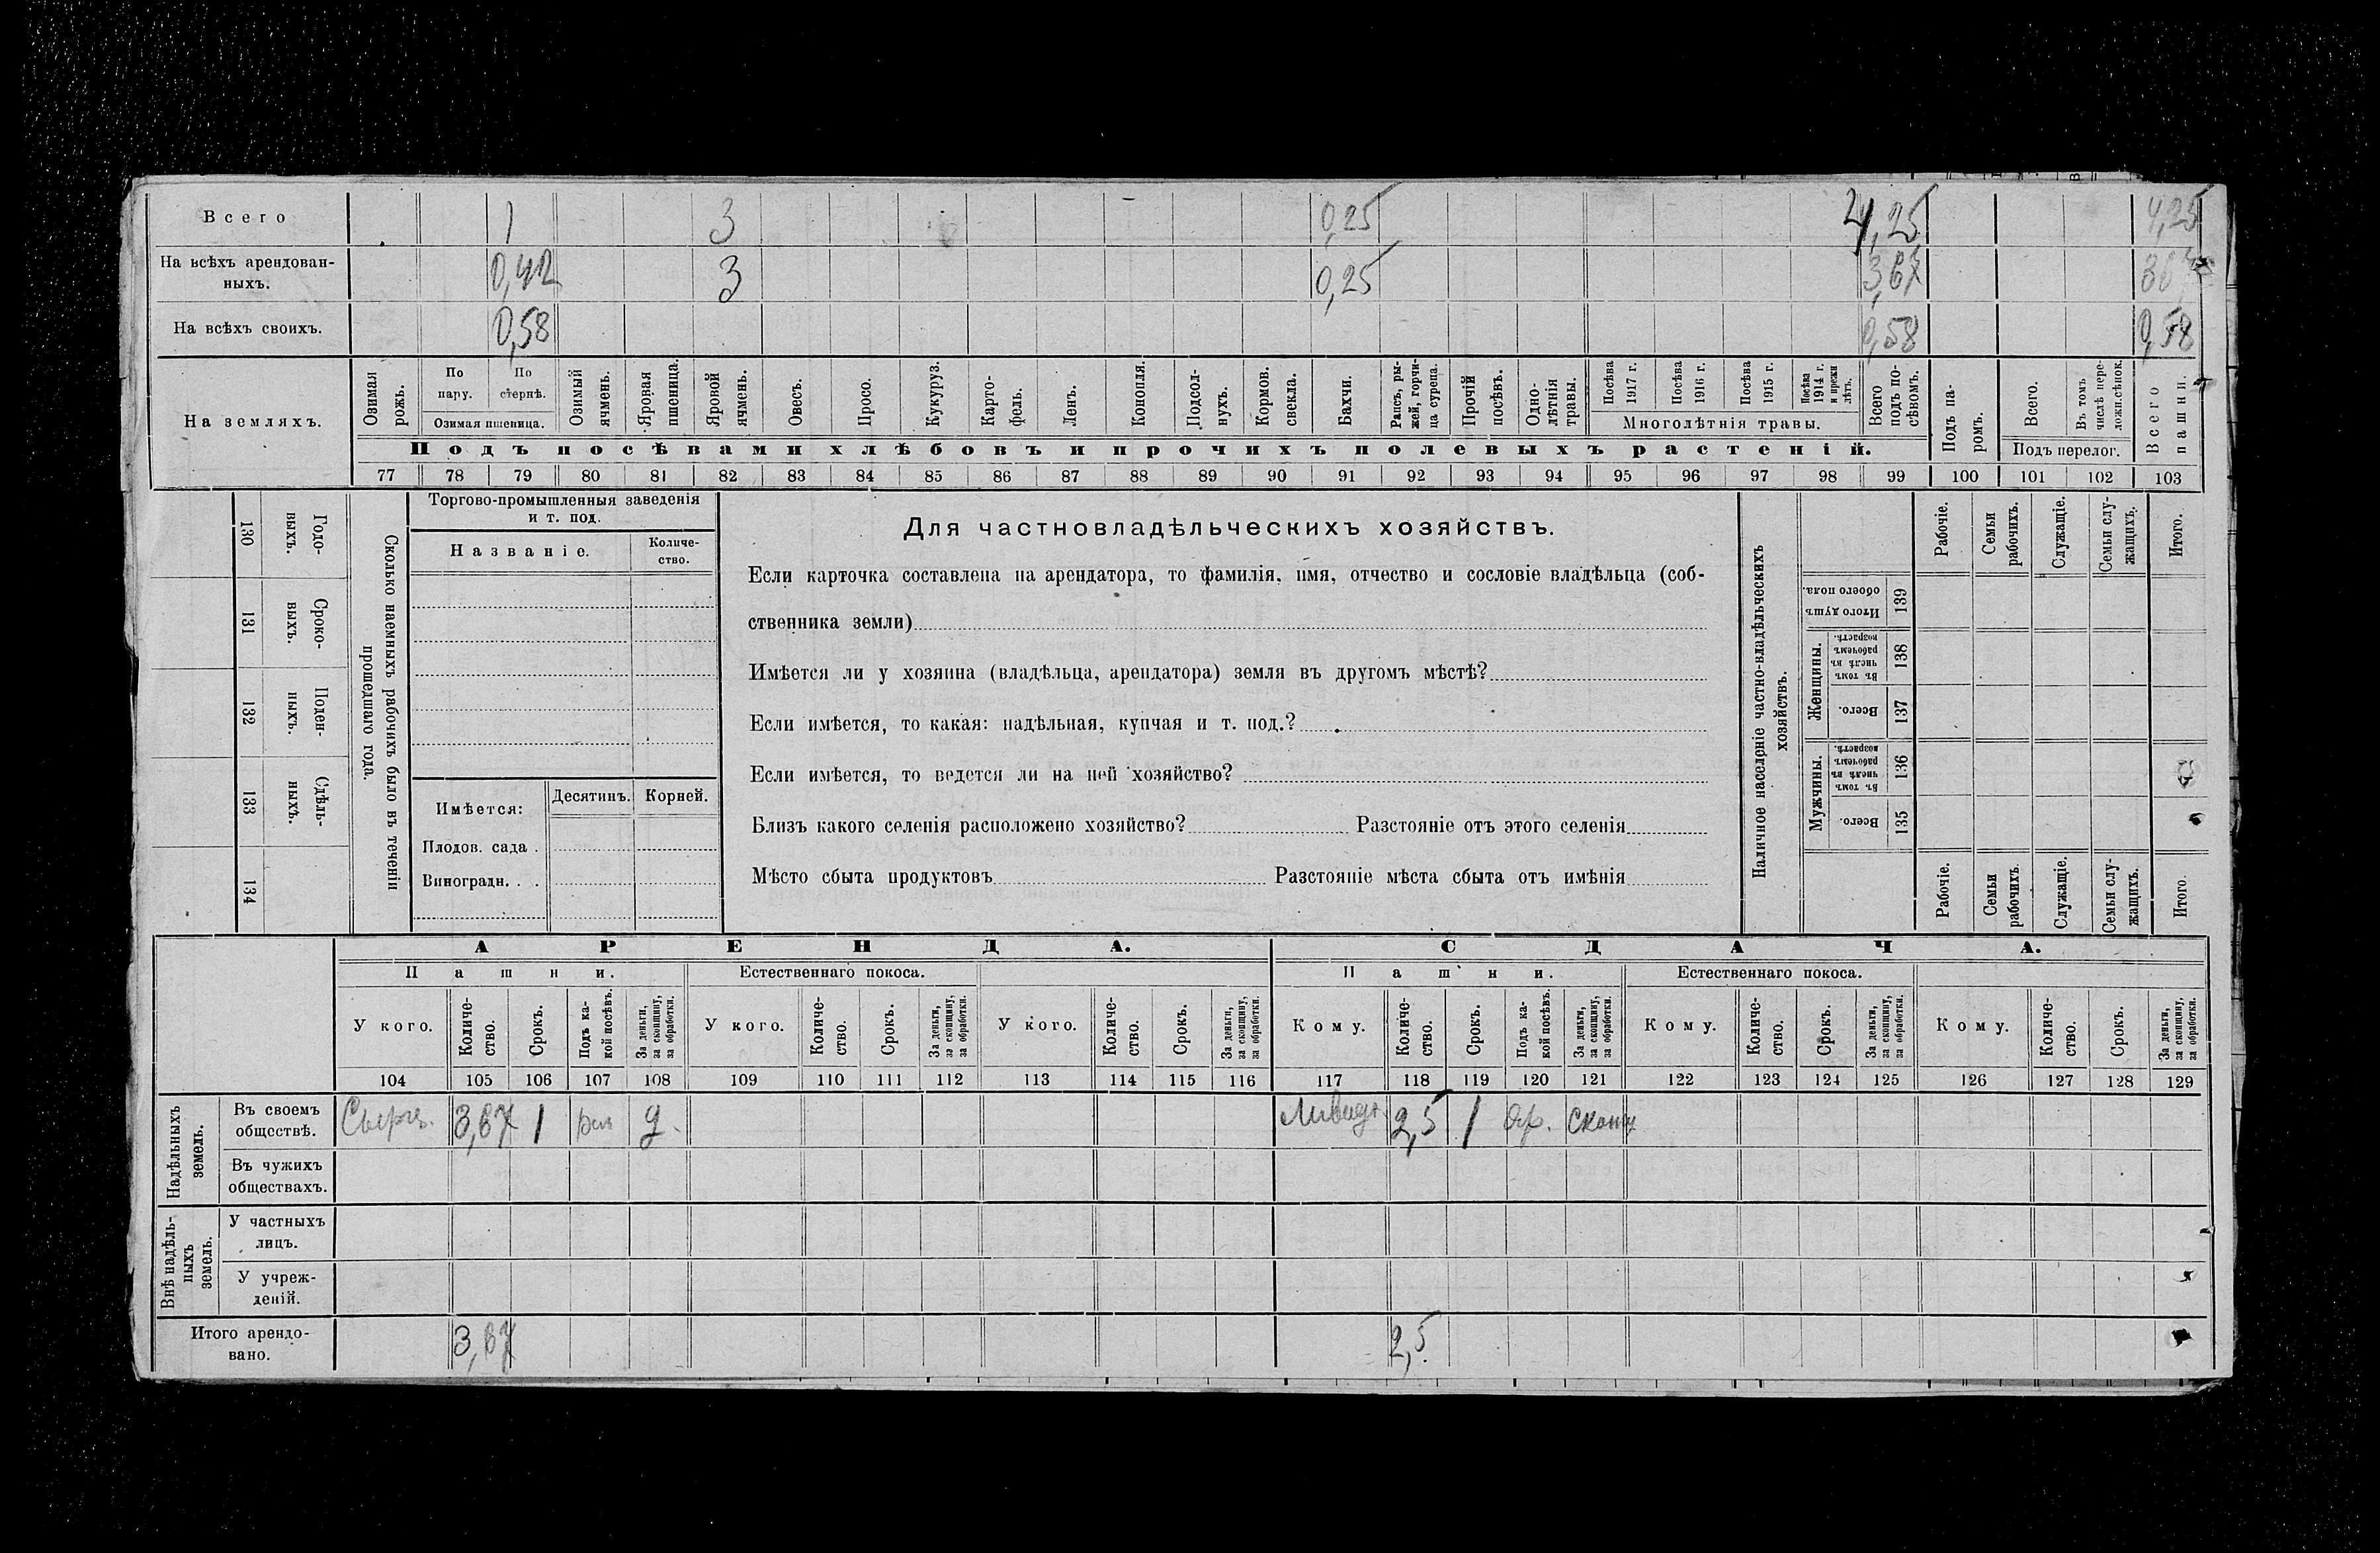 Всего 1 3 0,25 4,25 4,25
На всѣхъ арендован-
ныхъ. 0,42 3 0,25 3,67
На всѣхъ своихъ. 0,58 0,58 0,58
На земляхъ.
Озимая рожь.
По пару.
По стернѣ.
Озимая пшеница.
Озимый ячмень.
Яровая пшеница.
Яровой ячмень.
Овесъ.
Просо.
Кукуруз.
Карто-
фель.
Ленъ.
Конопля.
Подсол-
нухъ.
Кормов. свекла.
Бахчи.
Рапсъ, ры-
жей, горчи-
ца сурепа.
Прочій посѣвъ.
Одно-
лѣтнія травы.
Посѣва 1917 г.
Посѣва 1916 г.
Посѣва 1915 г.
Посѣва 1914 г. и прежн лѣтъ.
Многолѣтнія травы.
Всего подъ по-
сѣвомъ.
Подъ па-
ромъ.
Всего.
Въ томъ числѣ пере-
ложн.сѣнок.
Подъ перелог.
Всего пашни.
Подъ посѣвами хлѣбовъ и прочихъ полевыхъ растеній.
77 78 79 80 81 82 83 84 85 86 87 88 89 90 91 92 93 94 95 96 97 98 99 100 101 102 103
130 Годо-
выхъ.
131 Сроко-
выхъ.
132 Поден-
ныхъ.
133 Сдѣль-
ныхъ.
134
Сколько наемныхъ рабочихъ было въ теченіи
прошедшаго года.
Торгово-промышленныя заведенія
и т. под.
Названіе.
Количе-
ство.
Имѣется: Десятинъ. Корней.
Плодов. сада .
Виноградн. . .
Для частновладѣльческихъ хозяйствъ.
Если карточка составлена на арендатора, то фамилія, имя, отчество и сословіе владѣльца (соб-
ственника земли)
Имѣется ли у хозяина (владѣльца, арендатора) земля въ другомъ мѣстѣ?
Если имѣется, то какая: надѣльная, купчая и т. под.?
Если имѣется, то ведется ли на ней хозяйство?
Близъ какого селенія расположено хозяйство? Разстояніе отъ этого селенія
Мѣсто сбыта продуктовъ Разстояніе мѣста сбыта отъ имѣнія
Наличное населеніе частно-владѣльческихъ
хозяйствъ.
Рабочіе.
Семьи рабочихъ.
Служащіе.
Семьи слу-
жащихъ.
Итого.
Итого душъ обоего пола. 139
Женщины.
Въ томъ числѣ въ рабочемъ возрастѣ. 138
Всего. 137
Мужчины.
Въ томъ числѣ въ рабочемъ возрастѣ. 136
Всего. 135
Рабочіе.
Семьи рабочихъ
Служащіе.
Семьи слу-
жащихъ.
Итого.
АРЕНДА. СДАЧА.
Пашни. Естественнаго покоса. Пашни. Естественнаго покоса.
У кого.
Количе-
ство.
Срокъ.
Подъ ка-
кой посѣвъ.
За деньги, за скопщину, за обработки.
У кого.
Количе-
ство.
Срокъ.
За деньги, за скопщину, за обработки.
У кого.
Количе-
ство.
Срокъ.
За деньги, за скопщину, за обработки.
Кому.
Количе-
ство.
Срокъ.
Подъ ка-
кой посѣвъ.
За деньги, за скопщину, за обработки.
Кому.
Количе-
ство.
Срокъ.
За деньги, за скопщину, за обработки.
Кому.
Количе-
ство.
Срокъ.
За деньги, за скопщину, за обработки.
104 105 106 107 108 109 110 111 112 113 114 115 116 117 118 119 120 121 122 123 124 125 126 127 128 129
Надѣльныхъ
земель.
Въ своемъ
обществѣ. 3,67 1 д. 2,5 1 яр.
Въ чужихъ
обществахъ.
Внѣ надѣль-
ныхъ
земель.
У частныхъ
лицъ.
У учреж-
деній.
Итого арендо-
вано. 3,67 2,5